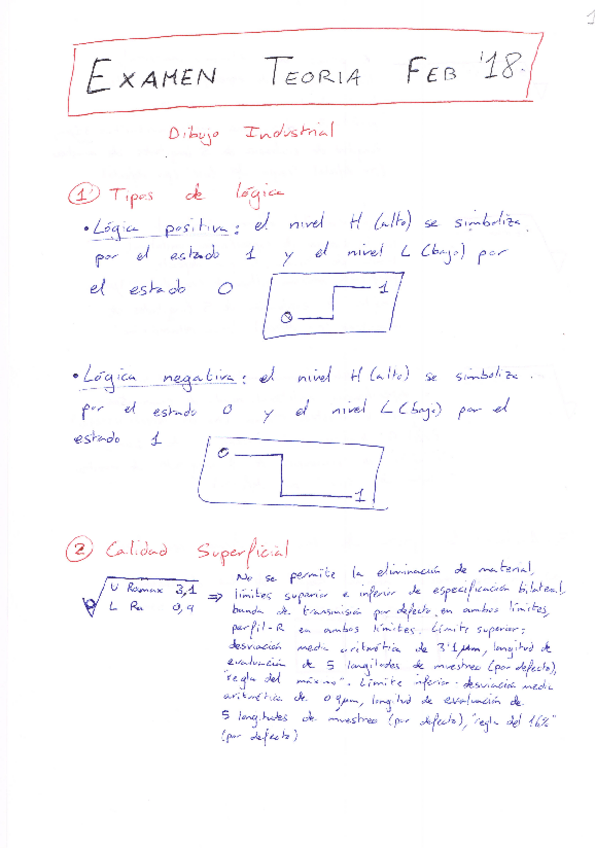 1
EXAMEN TEORIA FEB '18.
Dibujo Industrial
① Tipos de lógica
• Lógica positiva: el nivel H (alto) se simboliza
por el estado 1 y el nivel L (bajo) por
el estado 0
0 1
• Lógica negativa: el nivel H (alto) se simboliza
por el estado 0 y el nivel L (bajo) por el
estado 1
0
1
② Calidad Superficial
U Ramax 3,1
L Ra 0,9
⇒ No se permite la eliminación de material,
límites superior e inferior de especificación bilateral,
banda de transmisión por defecto en ambos límites,
perfil-R en ambos límites. Límite superior:
desviación media aritmética de 3'1 μm, longitud de
evaluación de 5 longitudes de muestreo (por defecto),
"regla del máximo". Límite inferior: desviación media
aritmética de 0'9 μm, longitud de evaluación de
5 longitudes de muestreo (por defecto), "regla del 16%"
(por defecto)